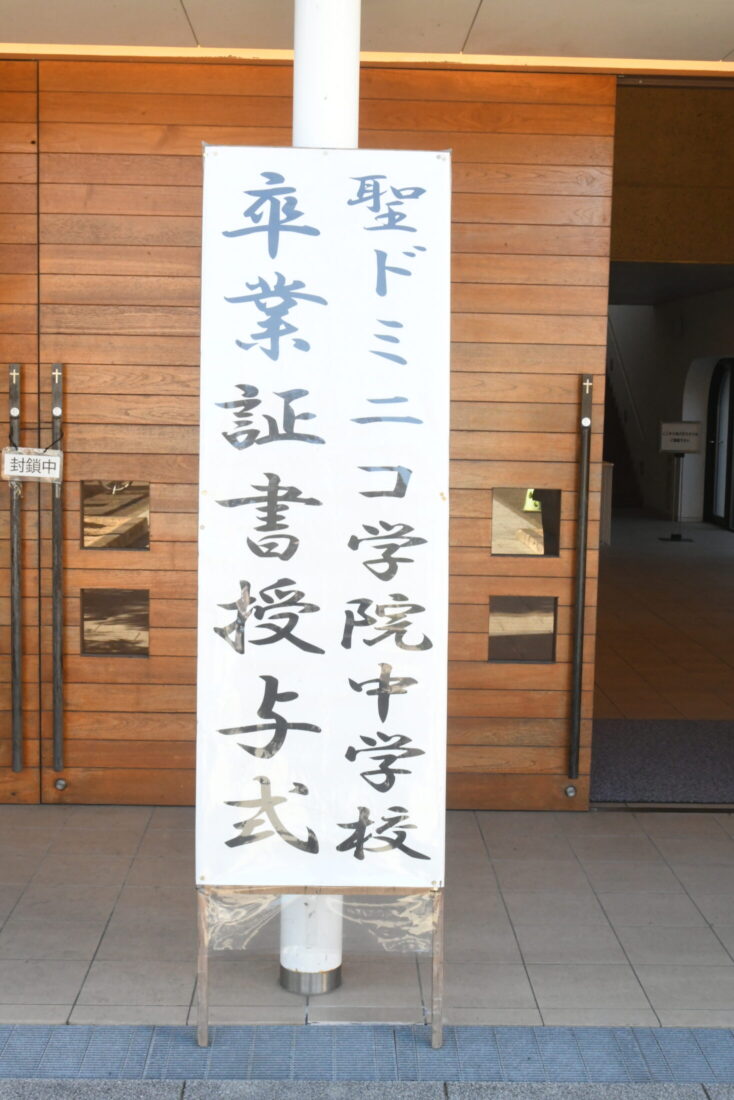 聖ドミニコ学院中学校
卒業証書授与式
封鎖中